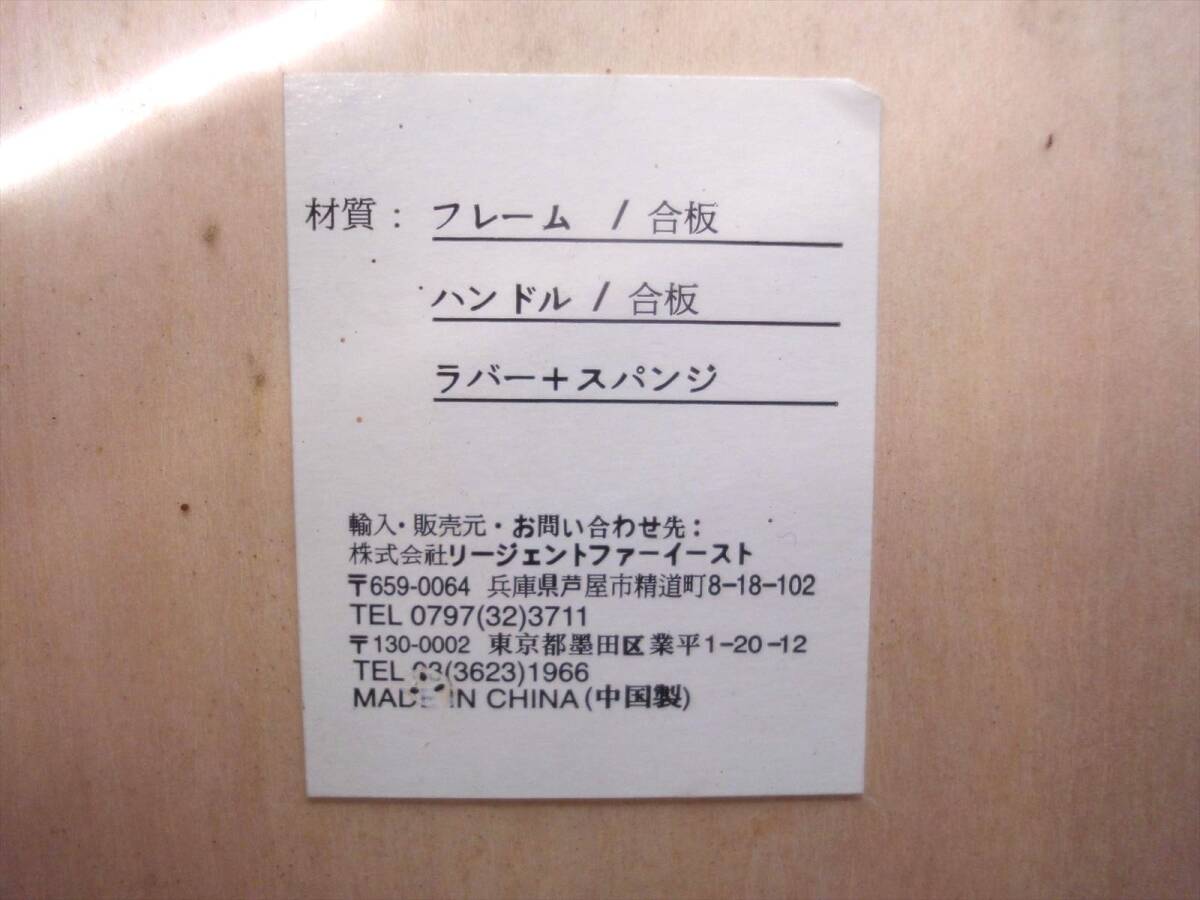 材質: フレーム / 合板
ハンドル / 合板
ラバー＋スパンジ
輸入・販売元・お問い合わせ先:
株式会社リージェントファーイースト
〒659-0064 兵庫県芦屋市精道町8-18-102
TEL 0797(32)3711
〒130-0002 東京都墨田区業平1-20-12
TEL 03(3623)1966
MADE IN CHINA (中国製)